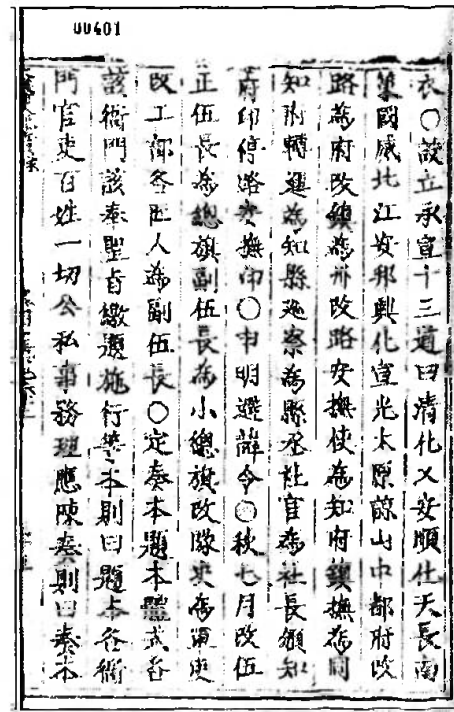 00401
衣○設立承宣十三道曰清化乂安順化天長南
策國威北江安邦興化宣光太原諒山中都府改
路為府改鎮為州改路安撫使為知府鎮撫為同
知府轉運為知縣巡察為縣丞社官為社長頒知
府印停路安撫印○申明選辭令○秋七月改伍
正伍長為總旗副伍長為小總旗改隊吏為軍吏
改工部各匠人為副伍長○定奏本題本體式各
該衙門該奉聖旨繳題施行等本則曰題本各衙
門官吏百姓一切公私事務理應陳奏則曰奏本